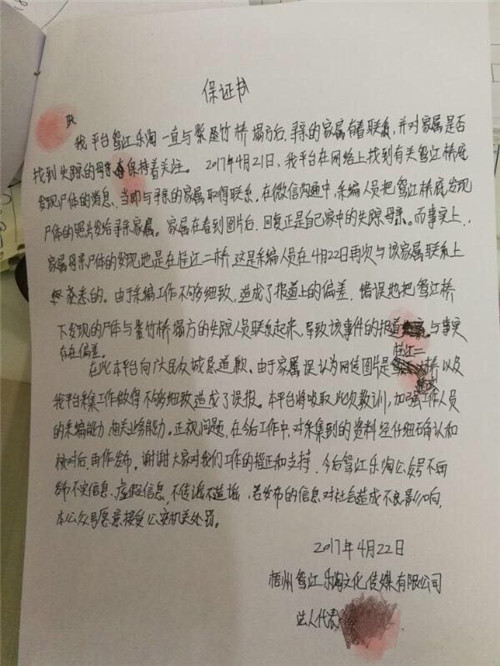 保证书
我平台鸳江乐淘一直与紫金竹桥塌方后,寻亲的家属有着联系,并对家属是否
找到失踪的母亲保持着关注。2017年4月21日,我平台在网络上找到有关鸳江桥底
发现尸体的消息,当即与寻亲的家属取得联系,在微信沟通中,采编人员把鸳江桥底发现
尸体的照片发给寻亲家属。家属在看到图片后,回复正是自己家中的失踪母亲。而事实上,
家属母亲尸体的发现地是在桂江二桥,这是采编人员在4月22日再次与该家属联系上
获悉的。由于采编工作不够细致,造成了报道上的偏差,错误地把鸳江桥
下发现的尸体与紫竹桥塌方的失踪人员联系起来,导致该事件的报道与事实
存在偏差。
在此本平台向广大民众诚恳道歉,由于家属误认为网传图片是桂江二桥以及
我平台采集工作做得不够细致造成了误报。本平台将吸取此次教训,加强工作人员
的采编能力,相关业务能力,正视问题,在今后工作中,对采集到的资料经仔细确认和
核对后,再作发布。谢谢大家对我们工作的指正和支持,今后鸳江乐淘公众号不再
发布不实信息、虚假信息,不传谣不造谣,若发布的信息对社会造成不良影响,
本公众号愿意接受公安机关处罚。
2017年4月22日
梧州鸳江乐淘文化传媒有限公司
法人代表